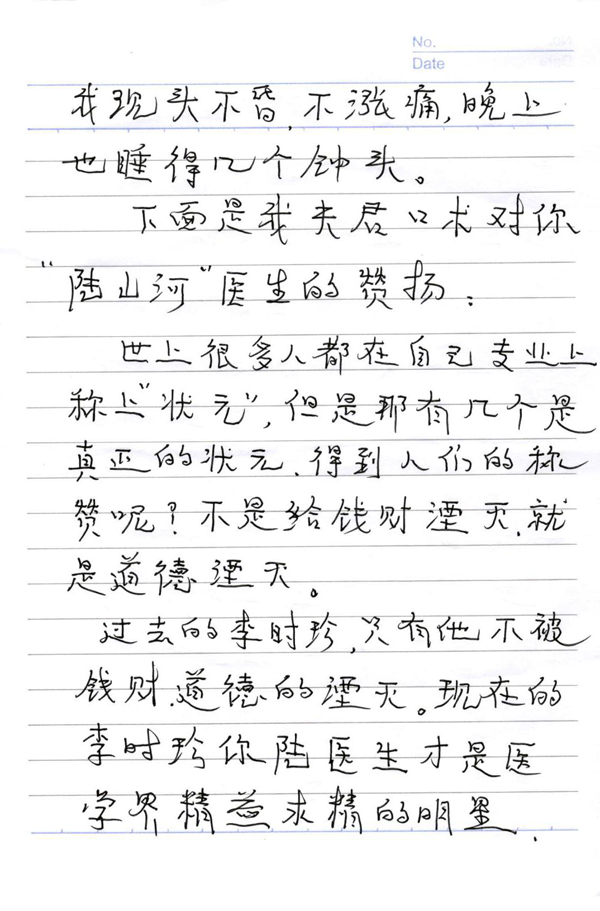 No.
Date
我现头不昏,不涨痛,晚上
也睡得几个钟头。
下面是我夫君口术对你
“陆山河”医生的赞扬:
世上很多人都在自己专业上
称上“状元”,但是那有几个是
真正的状元、得到人们的称
赞呢?不是给钱财湮灭,就
是道德湮灭。
过去的李时珍,只有他不被
钱财、道德的湮灭。现在的
李时珍你陆医生才是医
学界精益求精的明星.